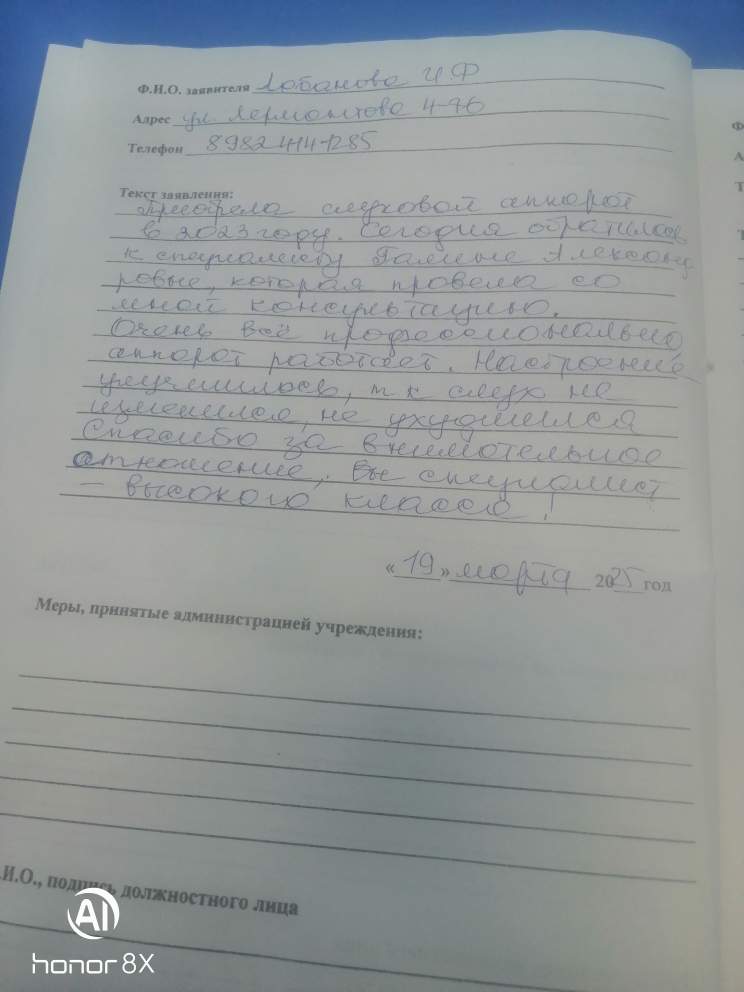 Ф.И.О. заявителя Лобанова И.Ф
Адрес ул. Лермонтова 4-76
Телефон
Текст заявления:
Приобрела слуховой аппарат
в 2023 году. Сегодня обратилась
к специалисту Галине Александ
ровне, которая провела со
мной консультацию.
Очень всё профессионально
аппарат работает. Настроение
улучшилось, т к слух не
изменился, не ухудшился
Спасибо за внимательное
отношение, Вы специалист
- высокого класса!
«19» марта 2025 год
Меры, принятые администрацией учреждения:
.И.О., подпись должностного лица
AI
honor 8X
Ф
А
Т